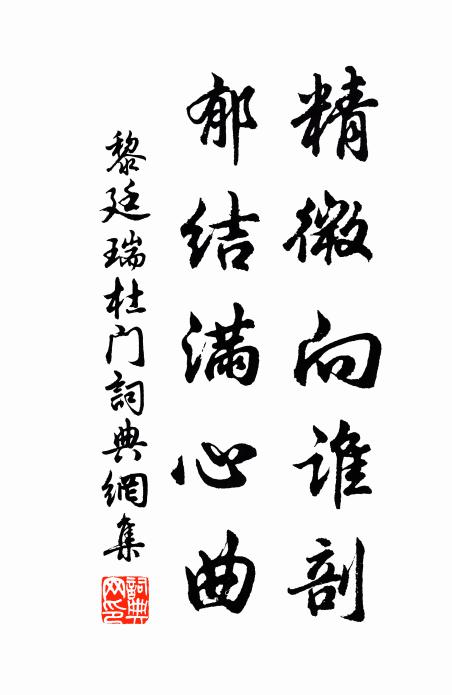 精微向谁剖
郁结满心曲
黎廷瑞杜门詞典網集
詞典網印